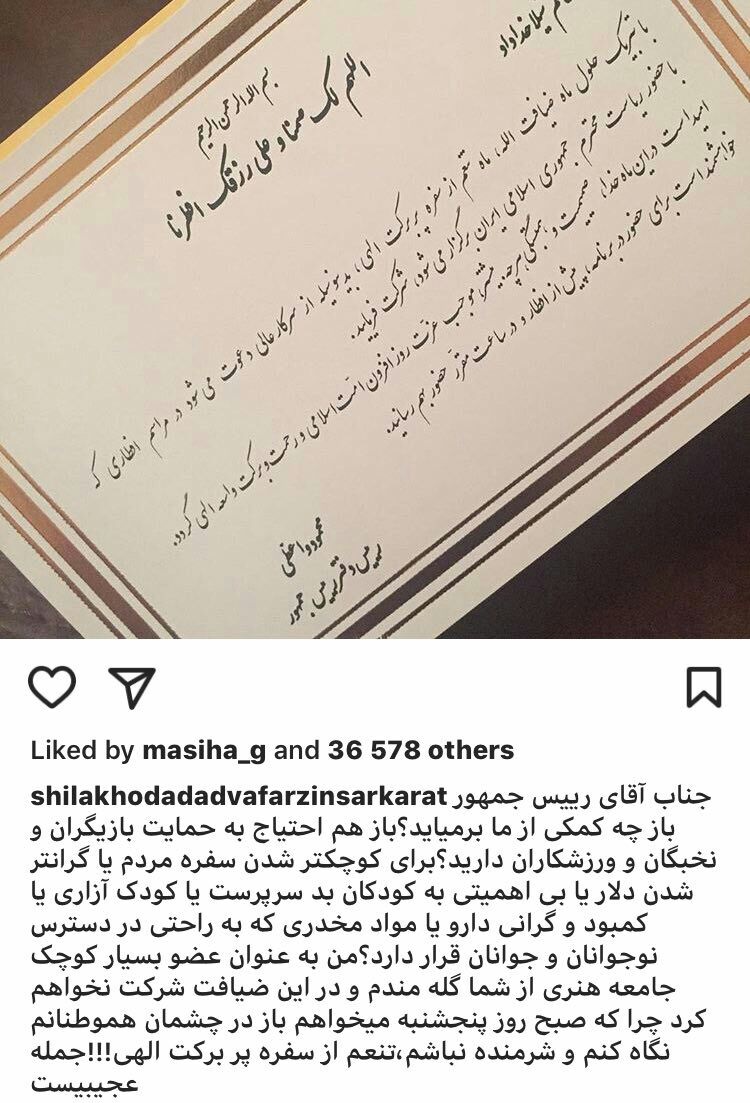 خانم شیلا خداداد
بسم الله الرحمن الرحیم
اللهم لک صمنا و علی رزقک افطرنا
با تبریک حلول ماه ضیافت الله، ماه تنعم از سفره پر برکت الهی، بدینوسیله از سرکار عالی دعوت می شود در مراسم افطاری که
با حضور ریاست محترم جمهوری اسلامی ایران برگزار می شود، شرکت فرمایید.
امید است در این ماه خدا، صمیمیت و همبستگی هر چه بیشتر، موجب عزت روز افزون امت اسلامی و رحمت و برکت واسعه الهی گردد.
خواهشمند است برای حضور در برنامه، پیش از افطار و در ساعت مقرر حضور بهم رسانید.
محمود واعظی
رییس دفتر رییس جمهور
Liked by masiha_g and 36 578 others
shilakhodadadvafarzinsarkarat جناب آقای رییس جمهور
باز چه کمکی از ما برمیاید؟باز هم احتیاج به حمایت بازیگران و
نخبگان و ورزشکاران دارید؟برای کوچکتر شدن سفره مردم یا گرانتر
شدن دلار یا بی اهمیتی به کودکان بد سرپرست یا کودک آزاری یا
کمبود و گرانی دارو یا مواد مخدری که به راحتی در دسترس
نوجوانان و جوانان قرار دارد؟من به عنوان عضو بسیار کوچک
جامعه هنری از شما گله مندم و در این ضیافت شرکت نخواهم
کرد چرا که صبح روز پنجشنبه میخواهم باز در چشمان هموطنانم
نگاه کنم و شرمنده نباشم،تنعم از سفره پر برکت الهی!!!جمله
عجیبیست